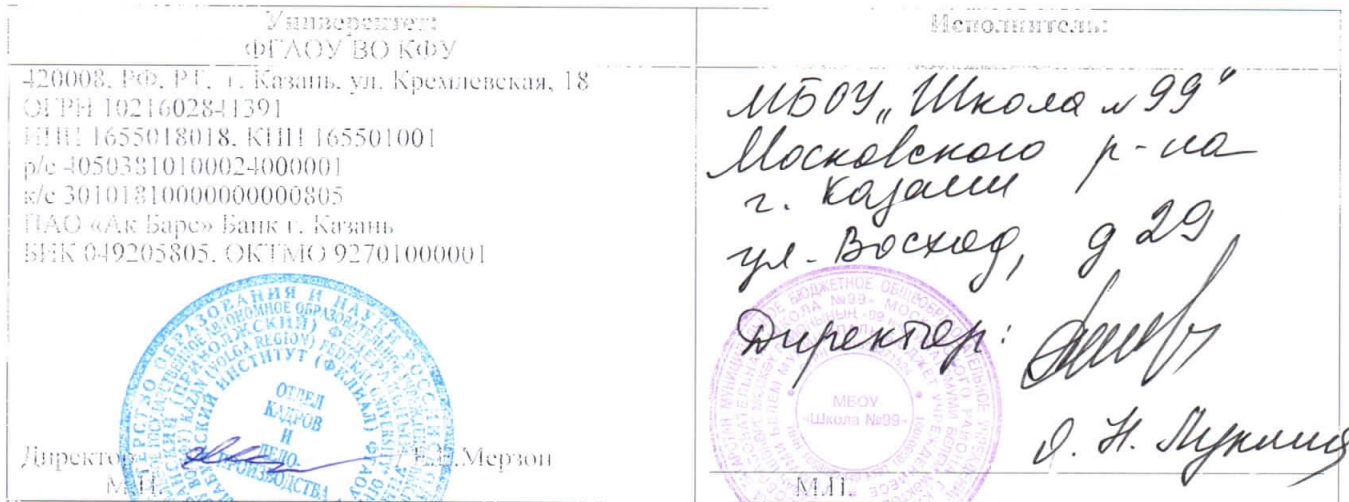 Университет:
ФГАОУ ВО КФУ
420008, РФ, РТ, г. Казань, ул. Кремлевская, 18
ОГРН 1021602841391
ИНН 1655018018, КПП 165501001
р/с 40503810100024000001
к/с 30101810000000000805
ПАО «Ак Барс» Банк г. Казань
БИК 049205805, ОКТМО 92701000001
Директор Мерзон
М.П.
ОТДЕЛ
КАДРОВ
И
ДЕЛО-
ПРОИЗВОДСТВА
Исполнитель:
МБОУ „Школа №99"
Московского р-на
г. Казани
ул. Восход, д 29
Директор:
МБОУ
«Школа №99»
М.П.